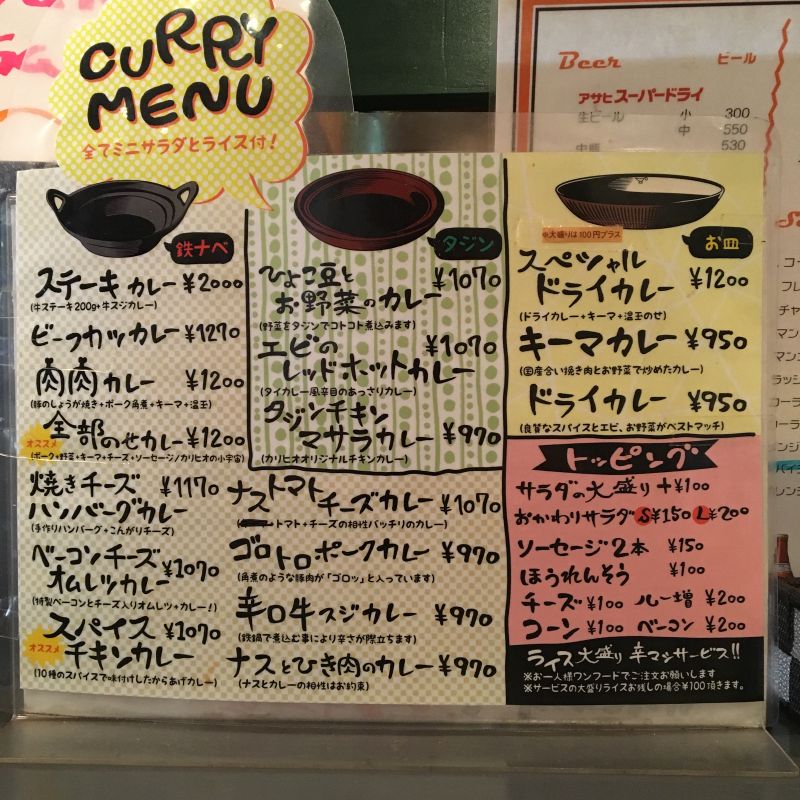 CURRY
MENU
全てミニサラダとライス付！
Beer ビール
アサヒスーパードライ
生ビール 小 300
中 550
530
鉄ナベ
ステーキカレー ¥2000
(牛ステーキ200g+牛スジカレー)
ビーフカツカレー ¥1270
肉肉カレー ¥1200
(豚のしょうが焼き+ポーク角煮+キーマ+温玉)
オススメ
全部のせカレー ¥1200
(ポーク+野菜+キーマ+チーズ+ソーセージ/カリヒオの小宇宙)
焼きチーズ ¥1170
ハンバーグカレー
(手作りハンバーグ+こんがりチーズ)
ベーコンチーズ ¥1070
オムレツカレー
(特製ベーコンとチーズ入りオムレツ+カレー！)
オススメ
スパイス ¥1070
チキンカレー
(10種のスパイスで味付けしたからあげカレー)
タジン
ひよこ豆と ¥1070
お野菜のカレー
(野菜をタジンでコトコト煮込みます)
エビの ¥1070
レッドホットカレー
(タイカレー風辛目のあっさりカレー)
タジンチキン
マサラカレー ¥970
(カリヒオオリジナルチキンカレー)
ナストマトチーズカレー ¥1070
トマト+チーズの相性バッチリのカレー)
ゴロトロポークカレー ¥970
(角煮のような豚肉が「ゴロッ」と入っています)
辛口牛スジカレー ¥970
(鉄鍋で煮込む事により辛さが際立ちます)
ナスとひき肉のカレー ¥970
(ナスとカレーの相性はお約束)
※大盛りは100円プラス
お皿
スペシャル
ドライカレー ¥1200
(ドライカレー+キーマ+温玉のせ)
キーマカレー ¥950
(国産合い挽き肉とお野菜で炒めたカレー)
ドライカレー ¥950
(良質なスパイスとエビ、お野菜がベストマッチ)
トッピング
サラダの大盛り+¥100
おかわりサラダ S¥150 L¥200
ソーセージ2本 ¥150
ほうれんそう ¥100
チーズ¥100 ルー増 ¥200
コーン ¥100 ベーコン ¥200
ライス大盛り 辛マシサービス!!
※お一人様ワンフードでご注文お願いします
※サービスの大盛りライスお残しの場合¥100頂きます。